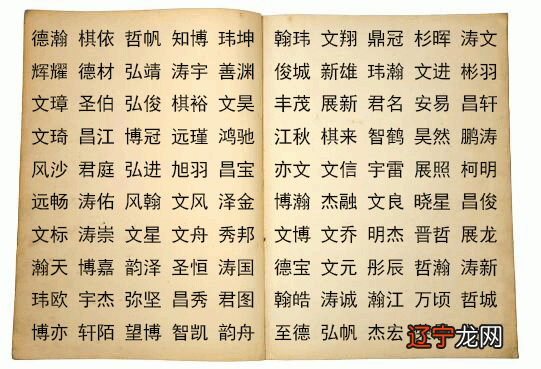 德瀚 棋依 哲帆 知博 玮坤
辉耀 德材 弘靖 涛宇 善渊
文璋 圣伯 弘俊 棋裕 文昊
文琦 昌江 博冠 远瑾 鸿驰
风沙 君庭 弘进 旭羽 昌宝
远畅 涛佑 风翰 文风 泽金
文标 涛崇 文星 文舟 秀邦
瀚天 博嘉 韵泽 圣恒 涛国
玮欧 宇杰 弥坚 昌秀 君图
博亦 轩陌 望博 智凯 韵舟
翰玮 文翔 鼎冠 杉晖 涛文
俊城 新雄 玮瀚 文进 彬羽
丰茂 展新 君名 安易 昌轩
江秋 棋来 智鹤 昊然 鹏涛
亦文 文信 宇雷 展照 柯明
博瀚 杰融 文良 晓星 昌俊
文博 文乔 明杰 晋哲 展龙
德宝 文元 彤辰 哲瀚 涛新
翰皓 涛诚 瀚江 万顷 哲城
至德 弘帆 杰宏
辽宁龙网